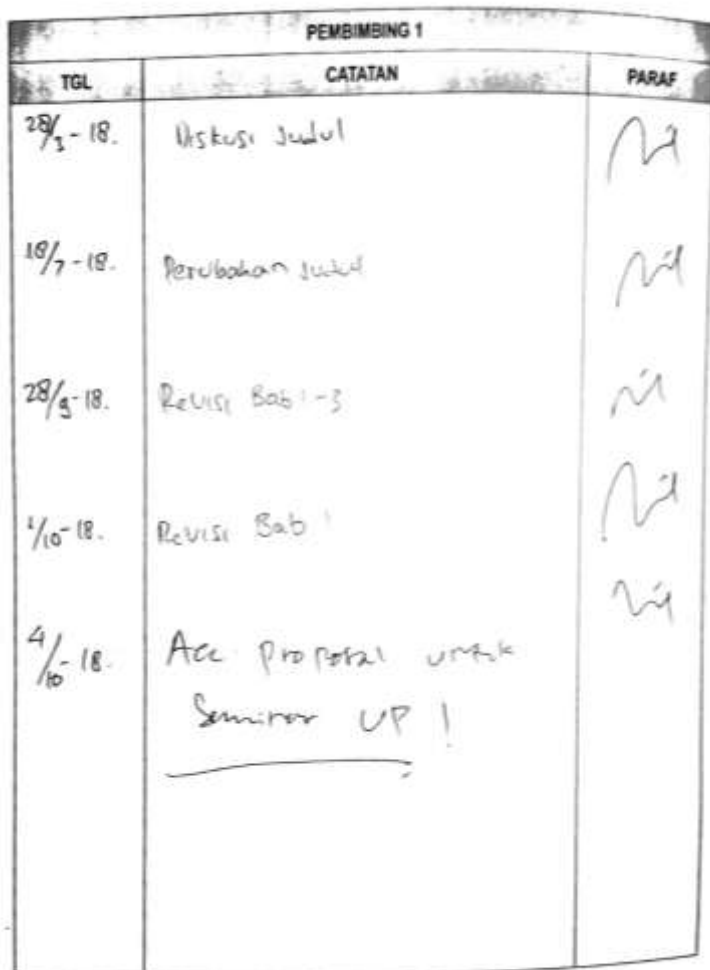 PEMBIMBING 1
TGL CATATAN PARAF
28/3-18. Diskusi Judul
18/7-18. Perubahan Judul
28/9-18. Revisi Bab 1-3
1/10-18. Revisi Bab 1
4/10-18. Acc proposal untuk
Seminar UP !